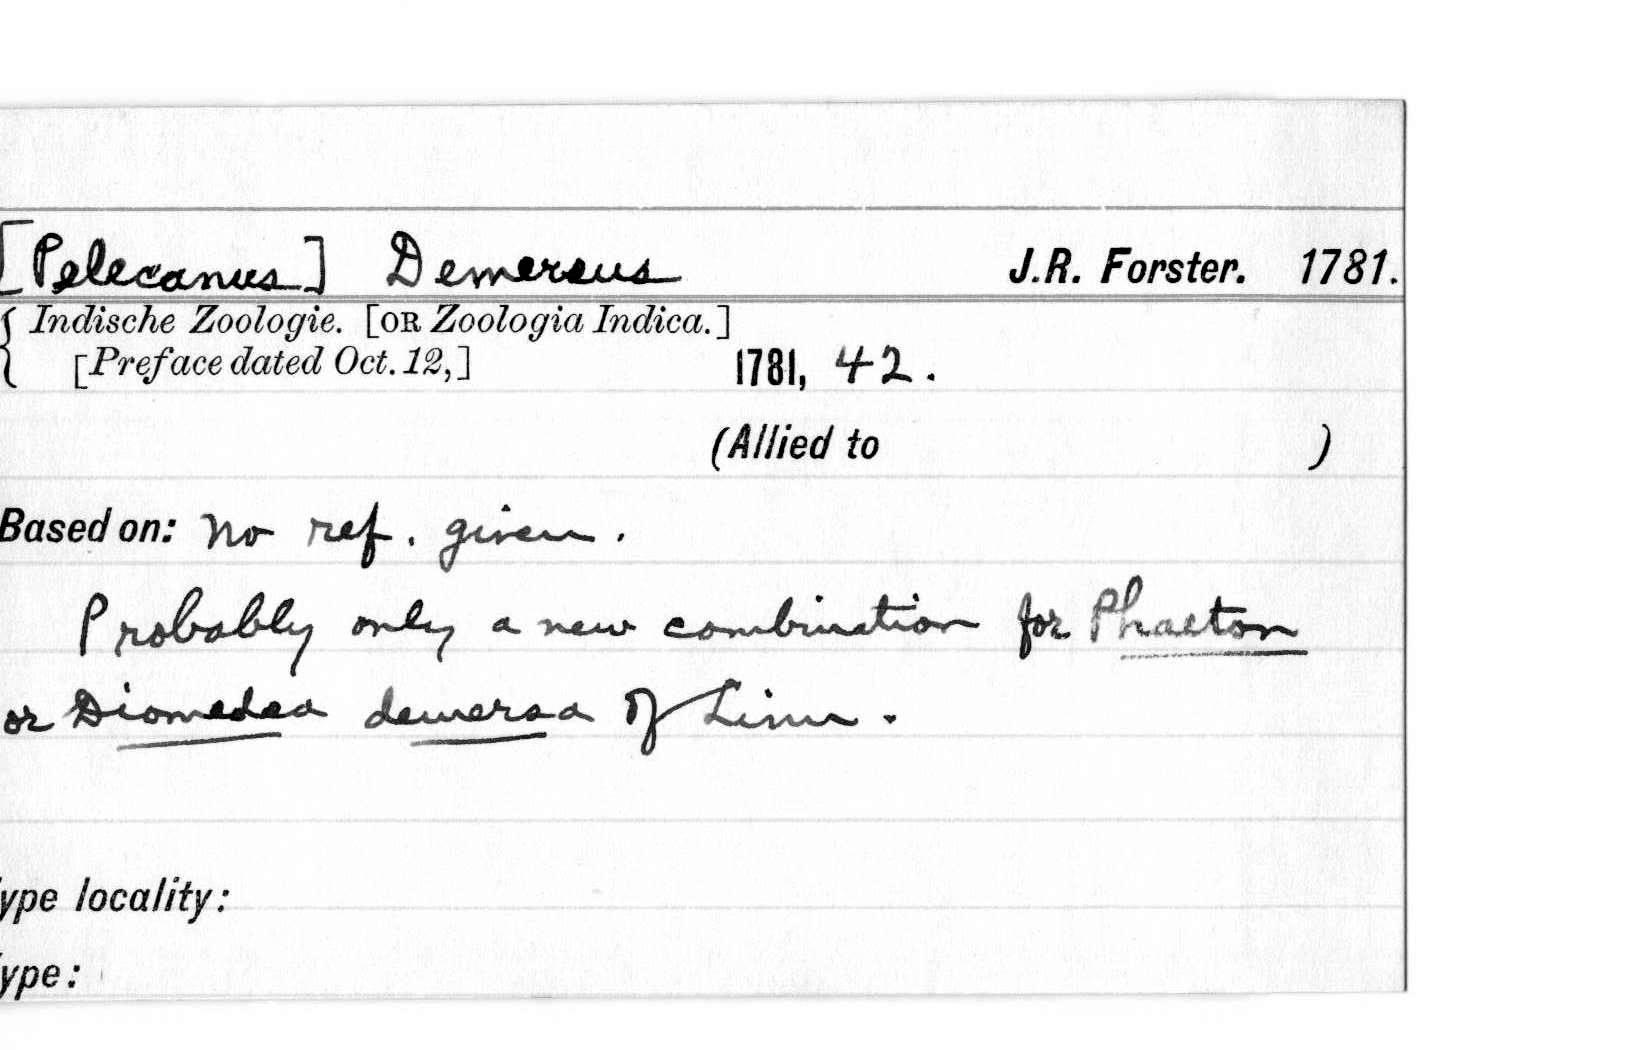 [Pelecanus] Demersus J.R. Forster. 1781.
{ Indische Zoologie. [OR Zoologia Indica.]
[Preface dated Oct. 12,] 1781, 42.
(Allied to )
Based on: No ref. given.
Probably only a new combination for Phaeton
or Diomedea demersa of Linn.
ype locality:
ype: